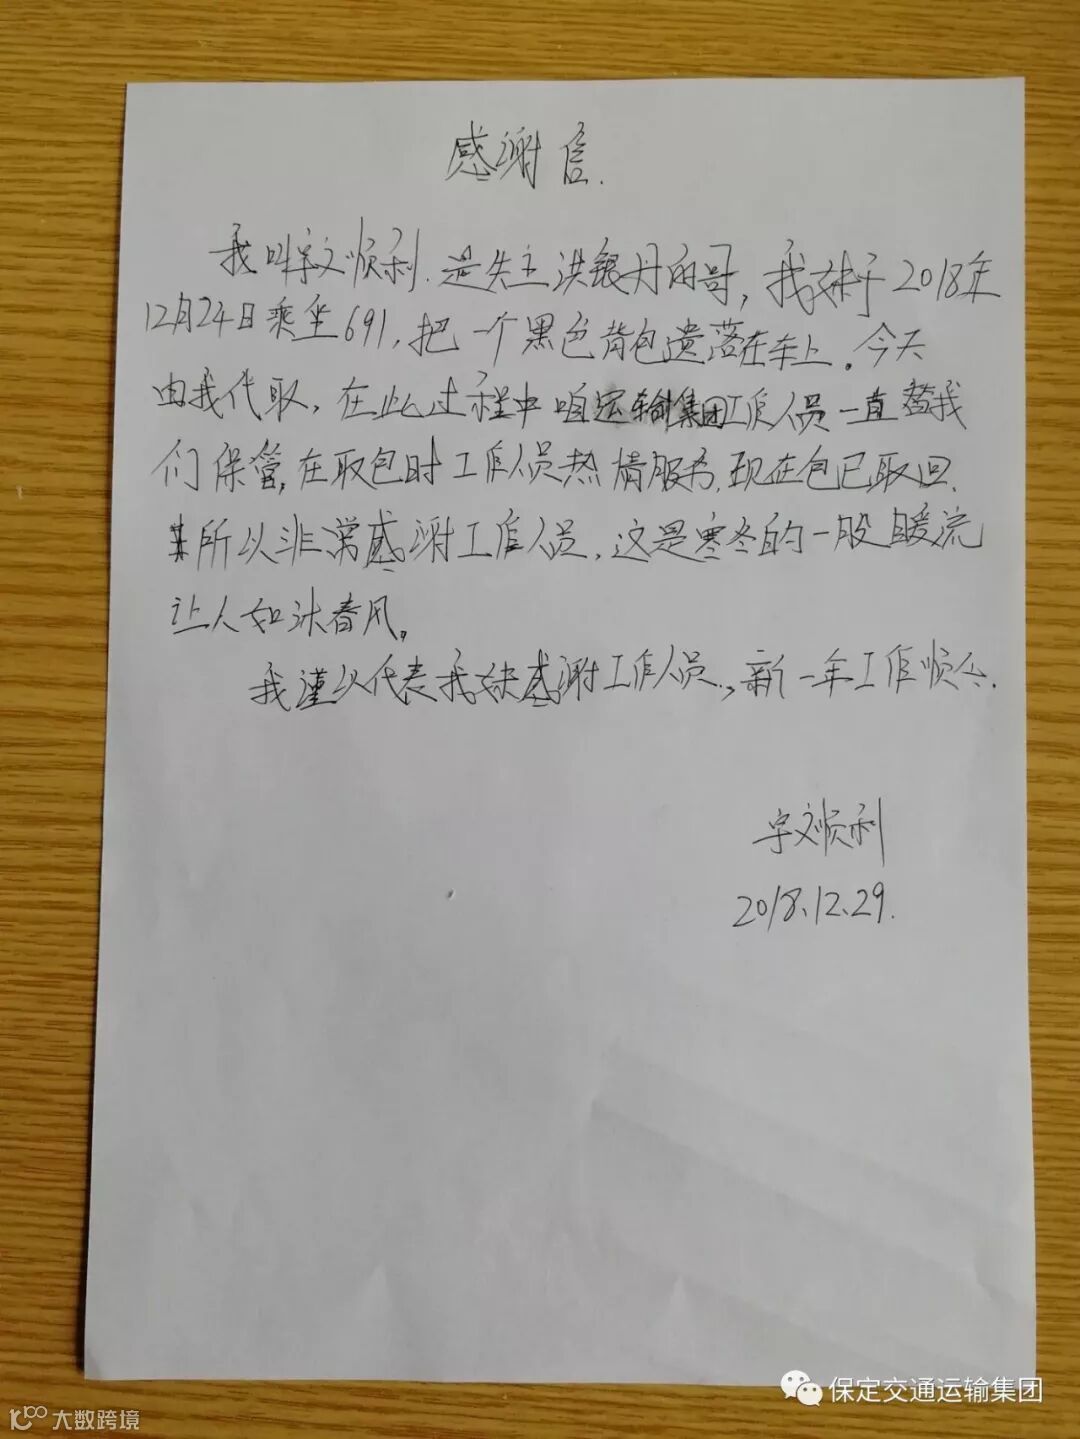 感谢信.
我叫宇文顺利.是失主洪银丹的哥,我妹于2018年
12月24日乘坐691,把一个黑色背包遗落在车上。今天
由我代取,在此过程中咱运输集团工作人员一直替我
们保管,在取包时工作人员热情服务,现在包已取回.
所以非常感谢工作人员,这是寒冬的一股暖流
让人如沐春风。
我谨以代表我妹感谢工作人员.,新一年工作顺心.
宇文顺利
2018.12.29.
保定交通运输集团
大数跨境